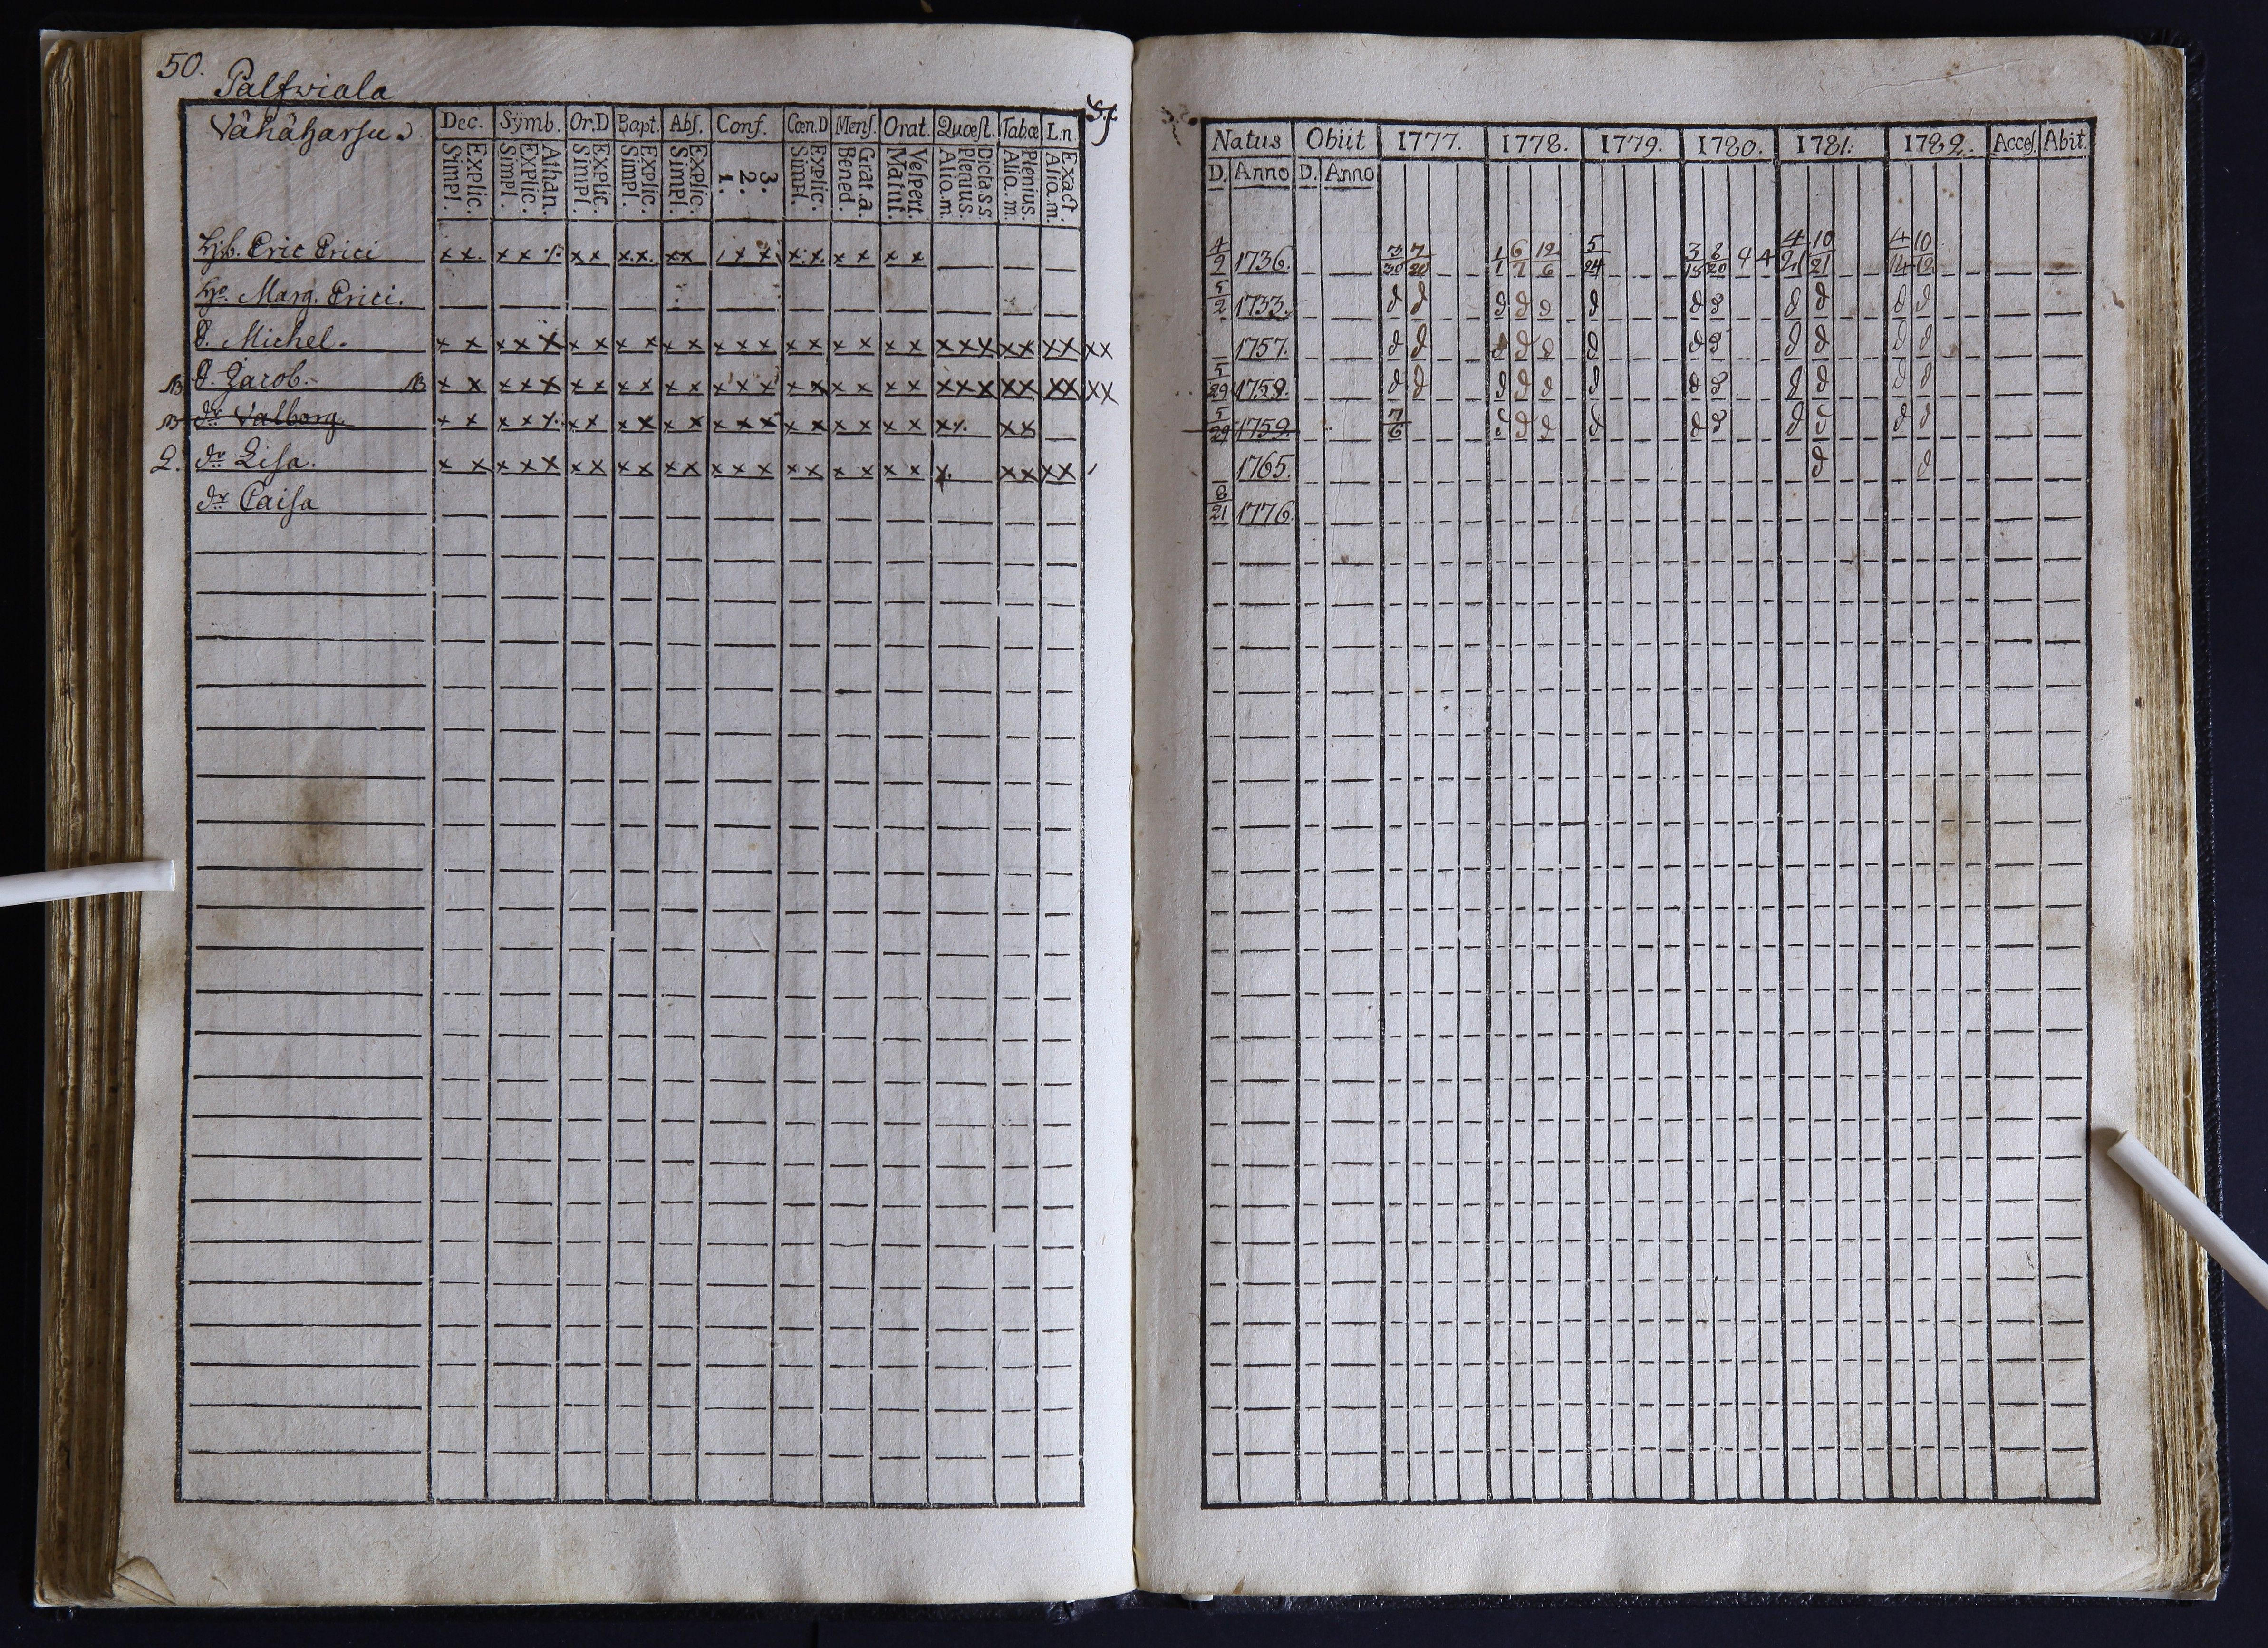 50.
Palfwiala
Vähäharju.
Dec. Symb. Or.D Bapt. Abs. Conf. Cœn.D Mens. Orat. Quæst. Tabœ L.n
Explic. Simpl. Athan. Explic. Simpl. Explic. Simpl. Explic. Simpl. Explic. Simpl. 3. 2. 1. Explic. Simpl. Grat.a. Bened. Vespert. Matut. Dicta s.s. Plenius. Alio.m. Plenius. Alio.m. Exact. Alio.m.
Natus Obiit 1777. 1778. 1779. 1780. 1781. 1782. Acces. Abit.
D. Anno D. Anno
Hb. Eric Erici x x. x x ·/· x x x.x. xx / x x x x x x x x 4/2 1736. 3/30 7/20 1/1 6/7 12/6 5/24 3/18 8/20 4 4 4/21 10/21 4/14 10/12
Ho. Marg. Erici. 5/2 1733. d d d d d d d d d d d d
d. Michel. x x x x x x x x x x x x x x x x x x x x x x x x x x x x x x 1757. d d d d d d d d d d d d
NB d. Jacob. NB x x x x x x x x x x x x x x x x x x x x x x x x x x x x x x 5/29 1759. d d d d d d d d d d d d
NB dr Valborg. x x x x ·/. x x x x x x x x x x x x x x x x ·/. x x 5/29 1759. 7/6 d d d d d d d d d d
L. dr Lisa. x x x x x x x x x x x x x x x x x x x x x. x x x x 1765. d d
dr Caisa 8/21 1776.